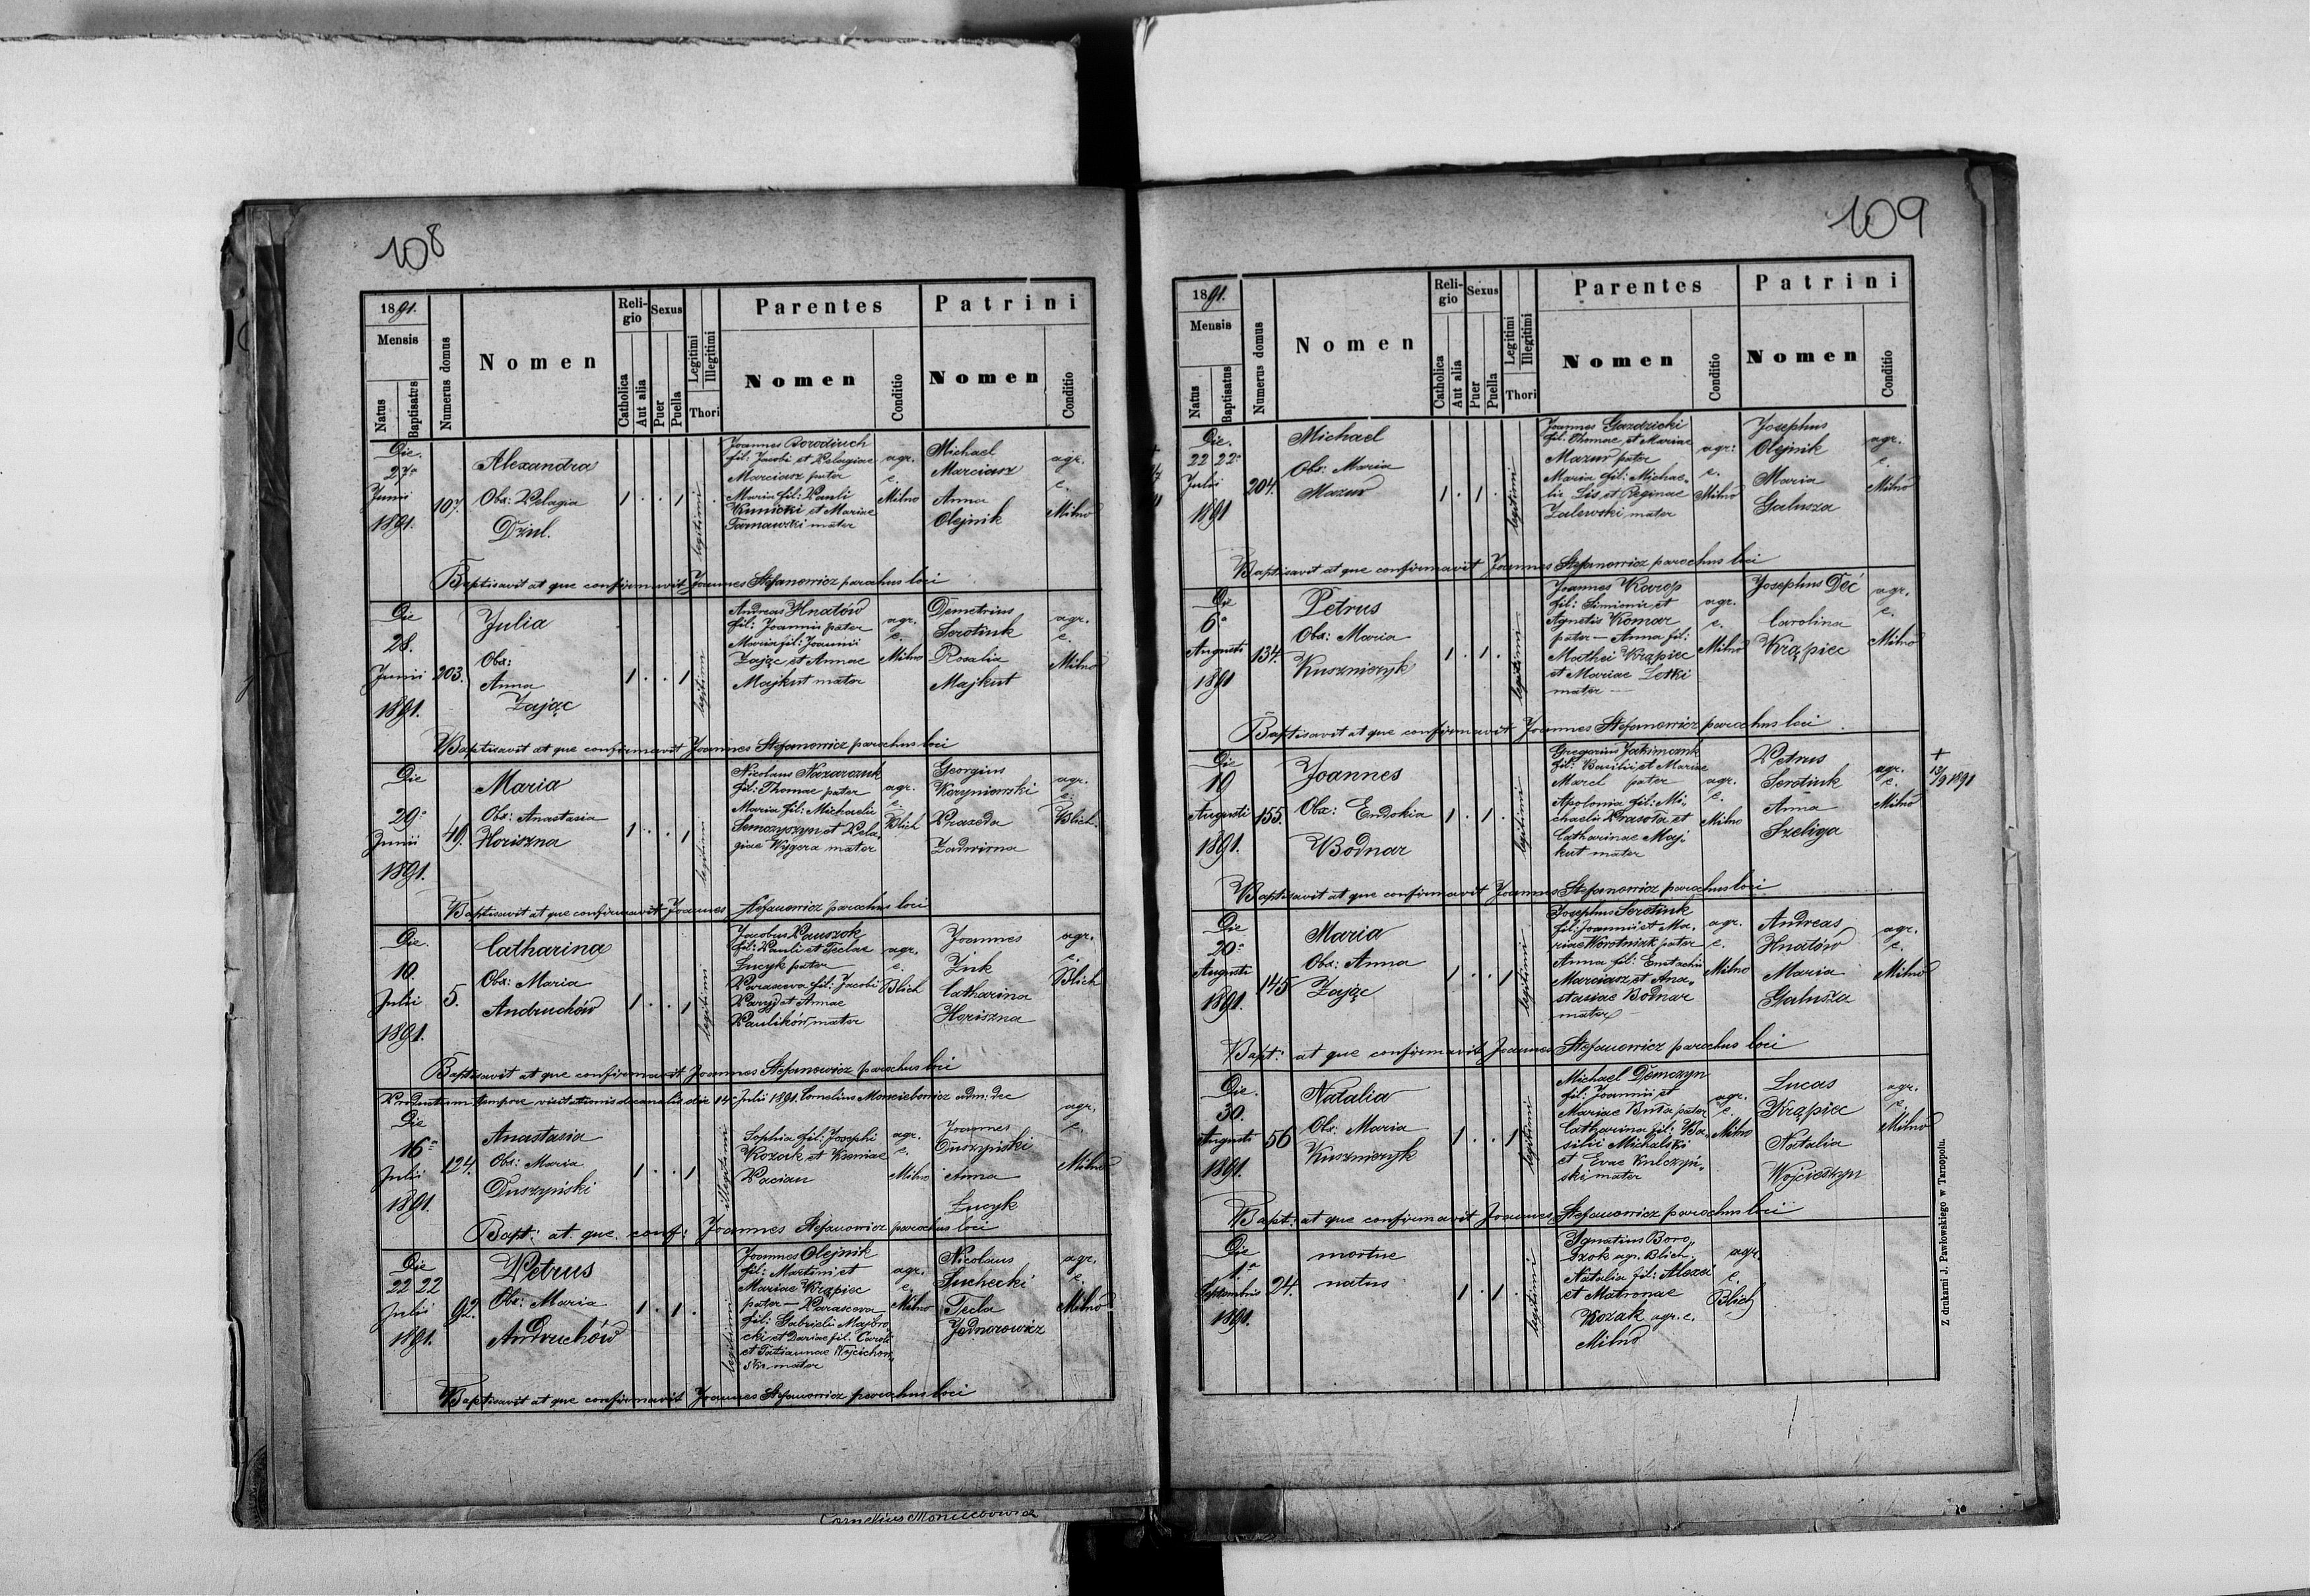 108
1891.
Mensis
Natus
Baptisatus
Numerus domus
Nomen
Religio
Catholica
Aut alia
Sexus
Puer
Puella
Legitimi
Illegitimi
Thori
Parentes
Nomen
Conditio
Patrini
Nomen
Conditio
Die
27a
Junii
1891.
107.
Alexandra
Obs: Pelagia
Dziul.
1 . . 1
legitimi
Joannes Borodiuch
fil: Jacobi et Pelagiae
Marciasz pater
Maria fil: Pauli
Kunicki et Mariae
Tarnawski mater
agr.
c.
Milno
Michael
Marciasz
Anna
Olejnik
agr.
c.
Milno
Baptisavit at que confirmavit Joannes Stefanowicz parochus loci
Die
28.
Junii
1891.
203.
Julia
Obs:
Anna
Zając
1 . . 1
legitimi
Andreas Hnatów
fil: Joannis pater
Maria fil: Joannii
Zając et Annae
Majkut mater
agr.
c.
Milno
Demetrius
Serotiuk
Rosalia
Majkut
agr.
c.
Milno
Baptisavit at que confirmavit Joannes Stefanowicz parochus loci
Die
29a
Junii
1891.
49.
Maria
Obs: Anastasia
Horiszna
1 . . 1
legitimi
Nicolaus Nazarczuk
fil: Thomae pater
Maria fil: Michaelis
Semczyszyn et Pela-
giae Wygera mater
agr.
c.
Blich
Georgius
Koryniowski
Praxeda
Zadwirna
agr.
c.
Blich
Baptisavit at que confirmavit Joannes Stefanowicz parochus loci
Die
10.
Julii
1891.
5.
Catharina
Obs: Maria
Andruchów
1 . . 1
legitimi
Jacobus Pauszok
fil: Pauli et Teclae
Łucyk pater
Parasceva fil: Jacobi
Paryj et Annae
Paulików mater
agr.
c.
Blich
Joannes
Żuk
Catharina
Horiszna
agr.
c.
Blich
Baptisavit at que confirmavit Joannes Stefanowicz parochus loci
Productum tempore visitationis decanalis die 14 Julii 1891. Cornelius Monciebowicz adm: dec
Die
16a
Julii
1891.
124.
Anastasia
Obs: Maria
Duszyński
1 . . 1
illegitimi
Sophia fil: Josephi
Kozak et Kseniae
Pacian
agr.
c.
Milno
Joannes
Duszyński
Anna
Łucyk
agr.
c.
Milno
Bapt: at que conf: Joannes Stefanowicz parochus loci
Die
22 22
Julii
1891.
92.
Petrus
Obs: Maria
Andruchów
1 . 1 .
legitimi
Joannes Olejnik
fil: Martini et
Mariae Krąpiec
pater — Parasceva
fil: Gabrielis Majbro-
cki et Dariae fil: Caroli
et Tatiannae Wojcichow-
ski mater
agr.
c.
Milno
Nicolaus
Suchecki
Tecla
Jednorowicz
agr.
c.
Milno
Baptisavit at que confirmavit Joannes Stefanowicz parochus loci
Cornelius Monciebowicz
109
1891.
Mensis
Natus
Baptisatus
Numerus domus
Nomen
Religio
Catholica
Aut alia
Sexus
Puer
Puella
Legitimi
Illegitimi
Thori
Parentes
Nomen
Conditio
Patrini
Nomen
Conditio
Die.
22 22a
Julii
1891
204.
Michael
Obs: Maria
Mazur
1 . 1 .
legitimi
Joannes Gazdzicki
fil: Thomae et Mariae
Mazur pater
Maria fil: Michae-
lis Lis et Reginae
Zalewski mater
agr:
c.
Milno
Josephus
Olejnik
Maria
Galusza
agr.
c.
Milno
Baptisavit at que confirmavit Joannes Stefanowicz parochus loci
Die
6a
Augusti
1891
134.
Petrus
Obs: Maria
Kuszniryk
1 . 1 .
legitimi
Joannes Karop
fil: Simionis et
Agnetis Komar
pater — Anna fil:
Mathei Krąpiec
et Mariae Letki
mater —
agr.
c.
Milno
Josephus Deć
Carolina
Krąpiec
agr.
c.
Milno
Baptisavit at que confirmavit Joannes Stefanowicz parochus loci
Die
19
Augusti
1891.
155.
Joannes
Obs: Eudokia
Bodnar
1 . 1 .
legitimi
Gregorius Jakimczuk
fil: Basilii et Mariae
Marcl pater
Apolonia fil: Mi-
chaelis Krasota et
Catharinae Maj-
kut mater
agr.
c.
Milno
Petrus
Serotiuk
Anna
Szeliga
agr.
c.
Milno
+
13/9 1891
Baptisavit at que confirmavit Joannes Stefanowicz parochus loci
Die
20a
Augusti
1891.
145
Maria
Obs: Anna
Zając
1 . . 1
legitimi
Josephus Serotiuk
fil: Joannis et Ma-
riae Worotniak pater
Anna fil: Eustachii
Marciasz et Ana-
stasiae Bodnar
mater
agr.
c.
Milno
Andreas
Hnatów
Maria
Galusza
agr.
c.
Milno
Bapt: at que confirmavit Joannes Stefanowicz parochus loci
Die.
30.
Augusti
1891.
56
Natalia
Obs: Maria
Kuszniryk
1 . . 1
legitimi
Michael Demczyn
fil: Joannis et
Mariae Buta pater
Catharina fil: Ba-
silii Michalski
et Evae Kulczyń-
ski mater
agr.
c.
Milno
Lucas
Krąpiec
Natalia
Wojcieszyn
agr.
c.
Milno
Bapt: at que confirmavit Joannes Stefanowicz parochus loci
Die
1.a
Septembris
1891.
24.
mortue
natus
1 . 1 .
legitimi
Ignatius Boro-
szok agr. Blich.
Natalia fil: Alexei
et Matronae
Kozak agr. c.
Milno
agr.
c.
Blich
Z drukarni J. Pawłowskiego w Tarnopolu.